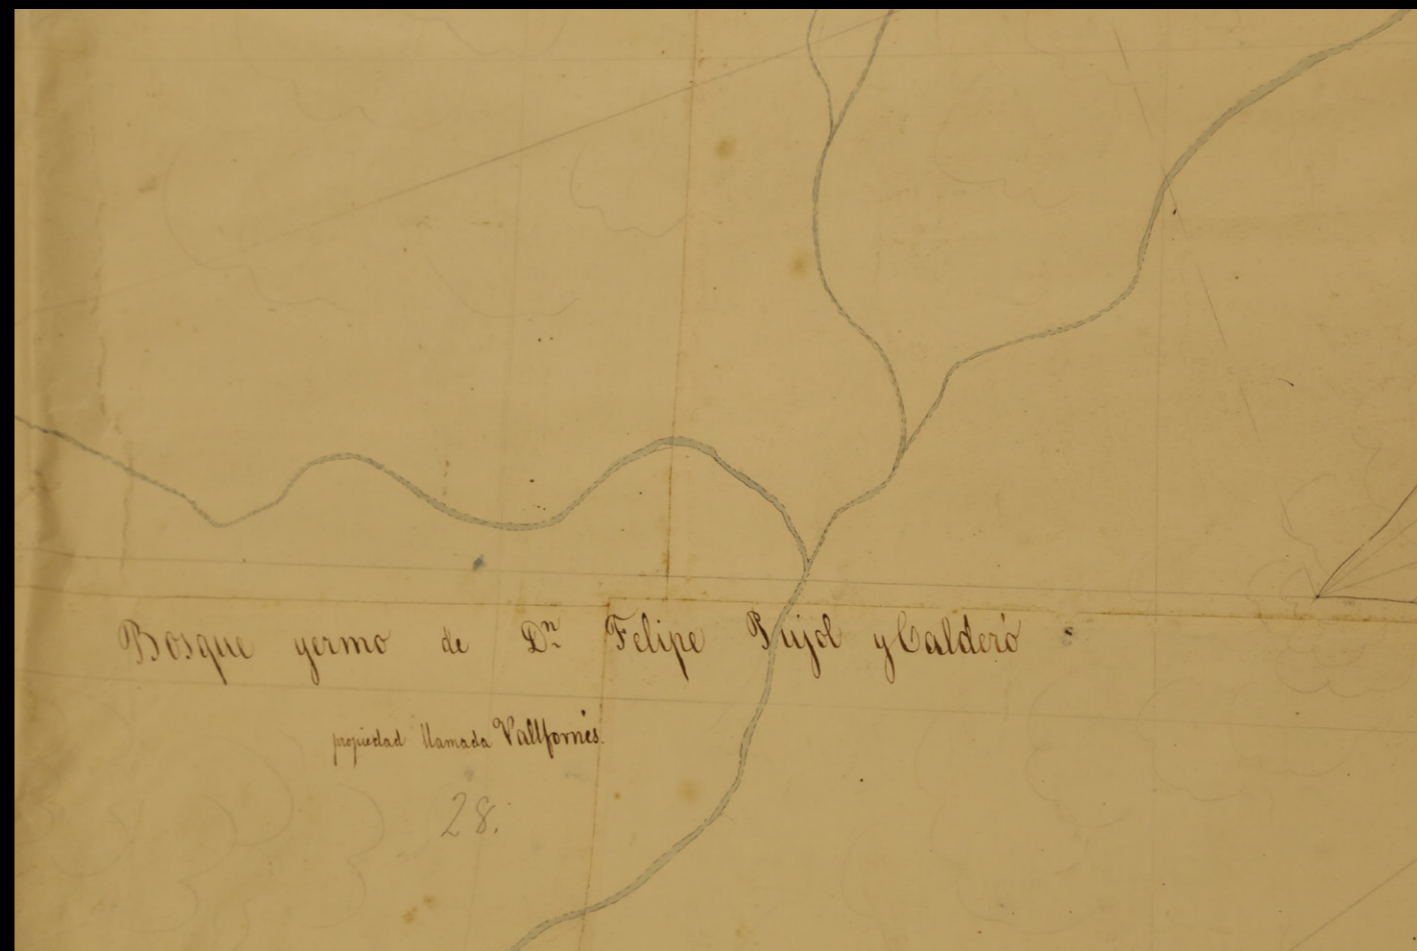 Bosque yermo de Dⁿ Felipe Pujol y Calderó
propiedad llamada Vallfornés.
28.